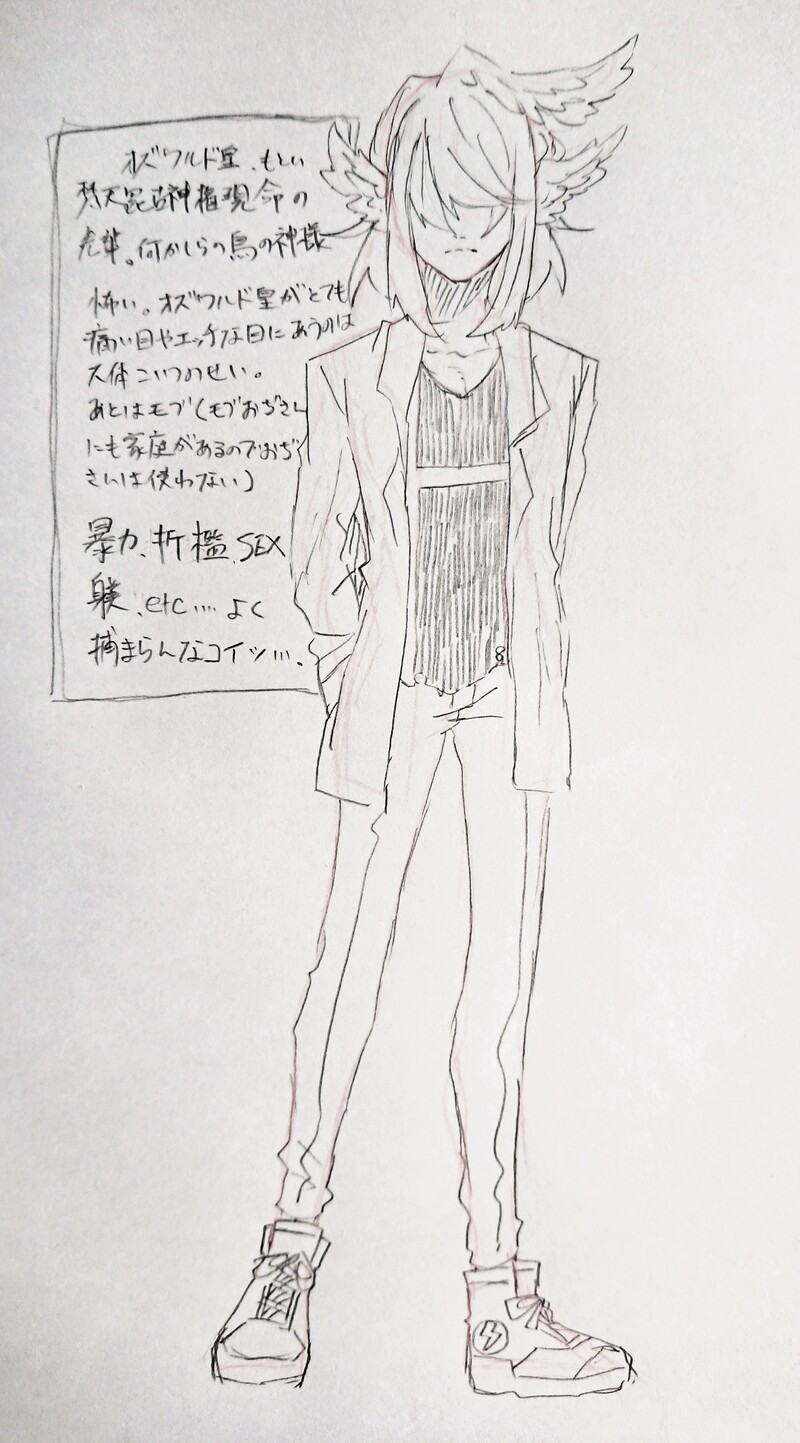 オズワルド皇、もとい
梵天毘古神権現命の
先輩。何かしらの鳥の神様
怖い。オズワルド皇がとても
痛い目やエッチな目にあうのは
大体こいつのせい。
あとはモブ(モブおぢさん
にも家庭があるのでおぢ
さんは使わない)
暴力、折檻、SEX
躾、etc.... よく
捕まらんなコイツ...。